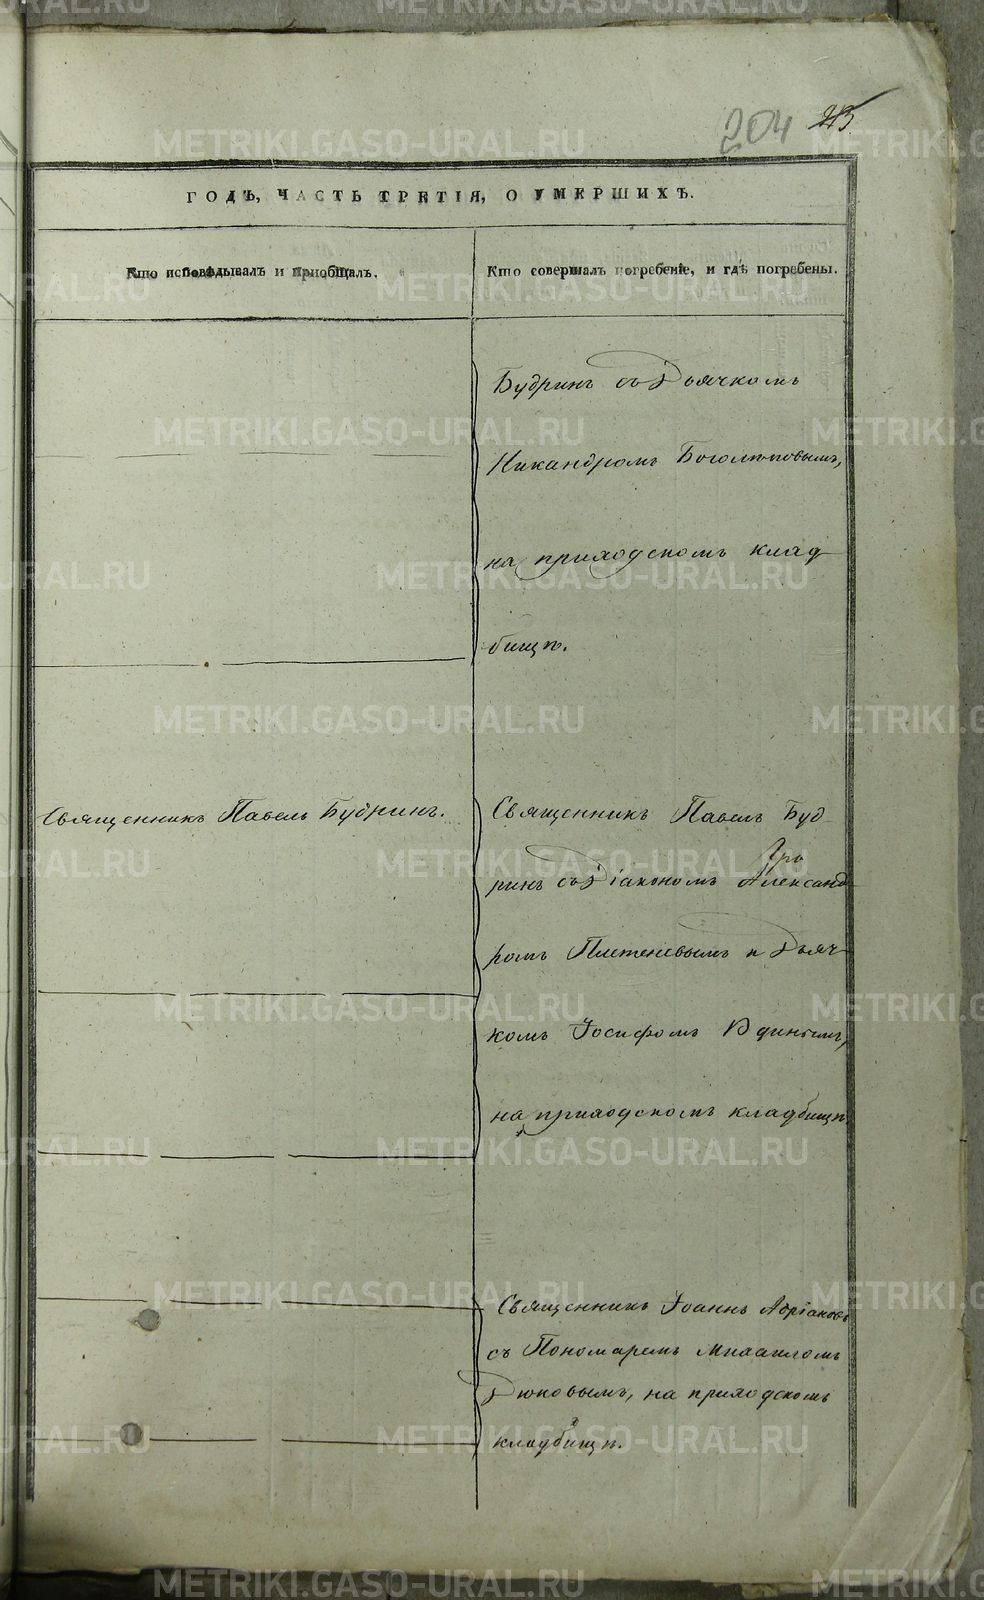 204 213
ГОДЪ, ЧАСТЬ ТРЕТІЯ, О УМЕРШИХЪ.
Кто исповѣдывалъ и пріобщалъ.
Кто совершалъ погребеніе, и гдѣ погребены.
Будринъ съ Дьячкомъ
Никандромъ Боголюповымъ,
на приходскомъ клад
бищѣ.
Священникъ Павелъ Будринъ.
Священникъ Павелъ Буд
ринъ съ Діакономъ Александ
ромъ Плетеневымъ и Дьяч
комъ Іосифомъ
на приходскомъ кладбищѣ.
Священникъ Іоаннъ Адріановъ
съ Пономаремъ Михаиломъ
Дюковымъ, на приходскомъ
кладбищѣ.
METRIKI.GASO-URAL.RU